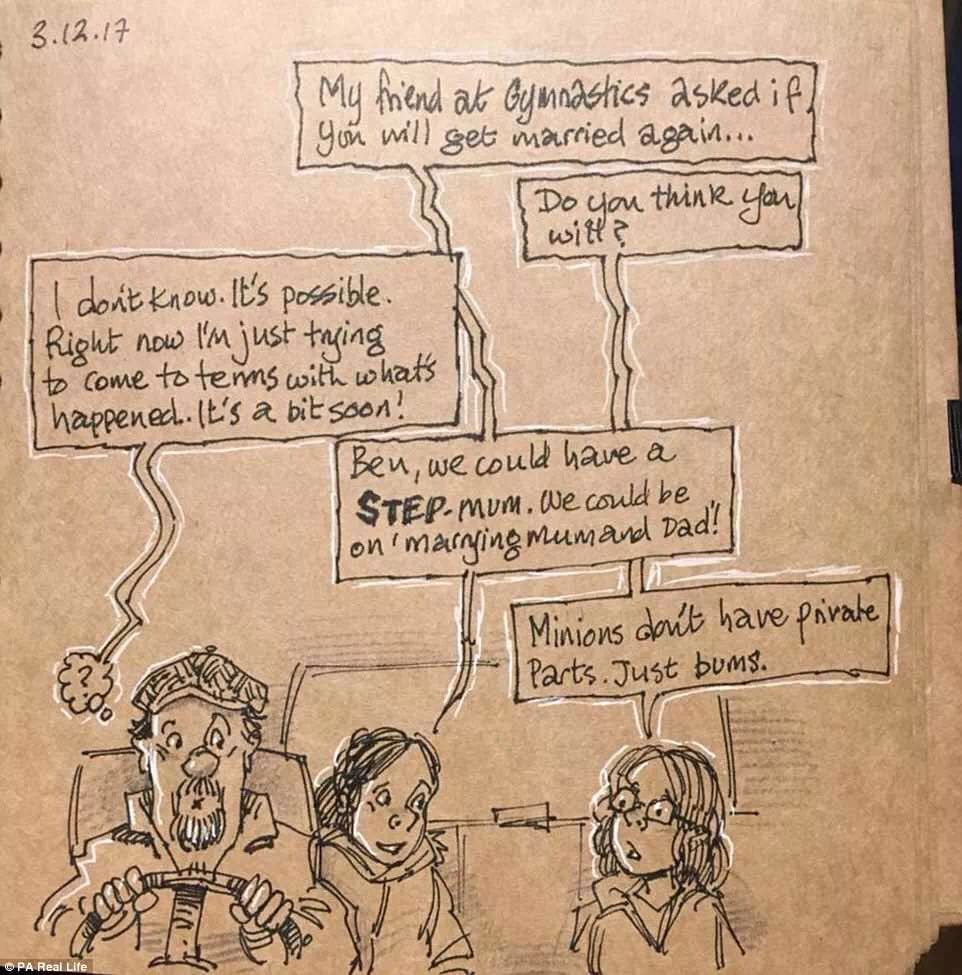 3.12.17
My friend at Gymnastics asked if
you will get married again...
Do you think you
will?
I don't know. It's possible.
Right now I'm just trying
to come to terms with what's
happened. It's a bit soon!
Ben, we could have a
STEP-mum. We could be
on 'marrying mum and Dad'!
Minions don't have private
Parts. Just bums.
?
© PA Real Life